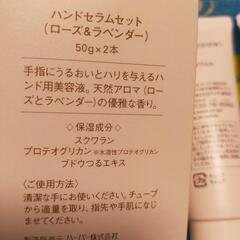 ハンドセラムセット
(ローズ&ラベンダー)
50g×2本
手指にうるおいとハリを与えるハ
ンド用美容液。天然アロマ(ロー
ズとラベンダー)の優雅な香り。
◇保湿成分◇
スクワラン
プロテオグリカン ※水溶性プロテオグリカン
ブドウつるエキス
〈ご使用方法〉
清潔な手にお使いください。チューブ
から適量を取り、指先や手肌になじ
ませてください。
ハーバー株式会社